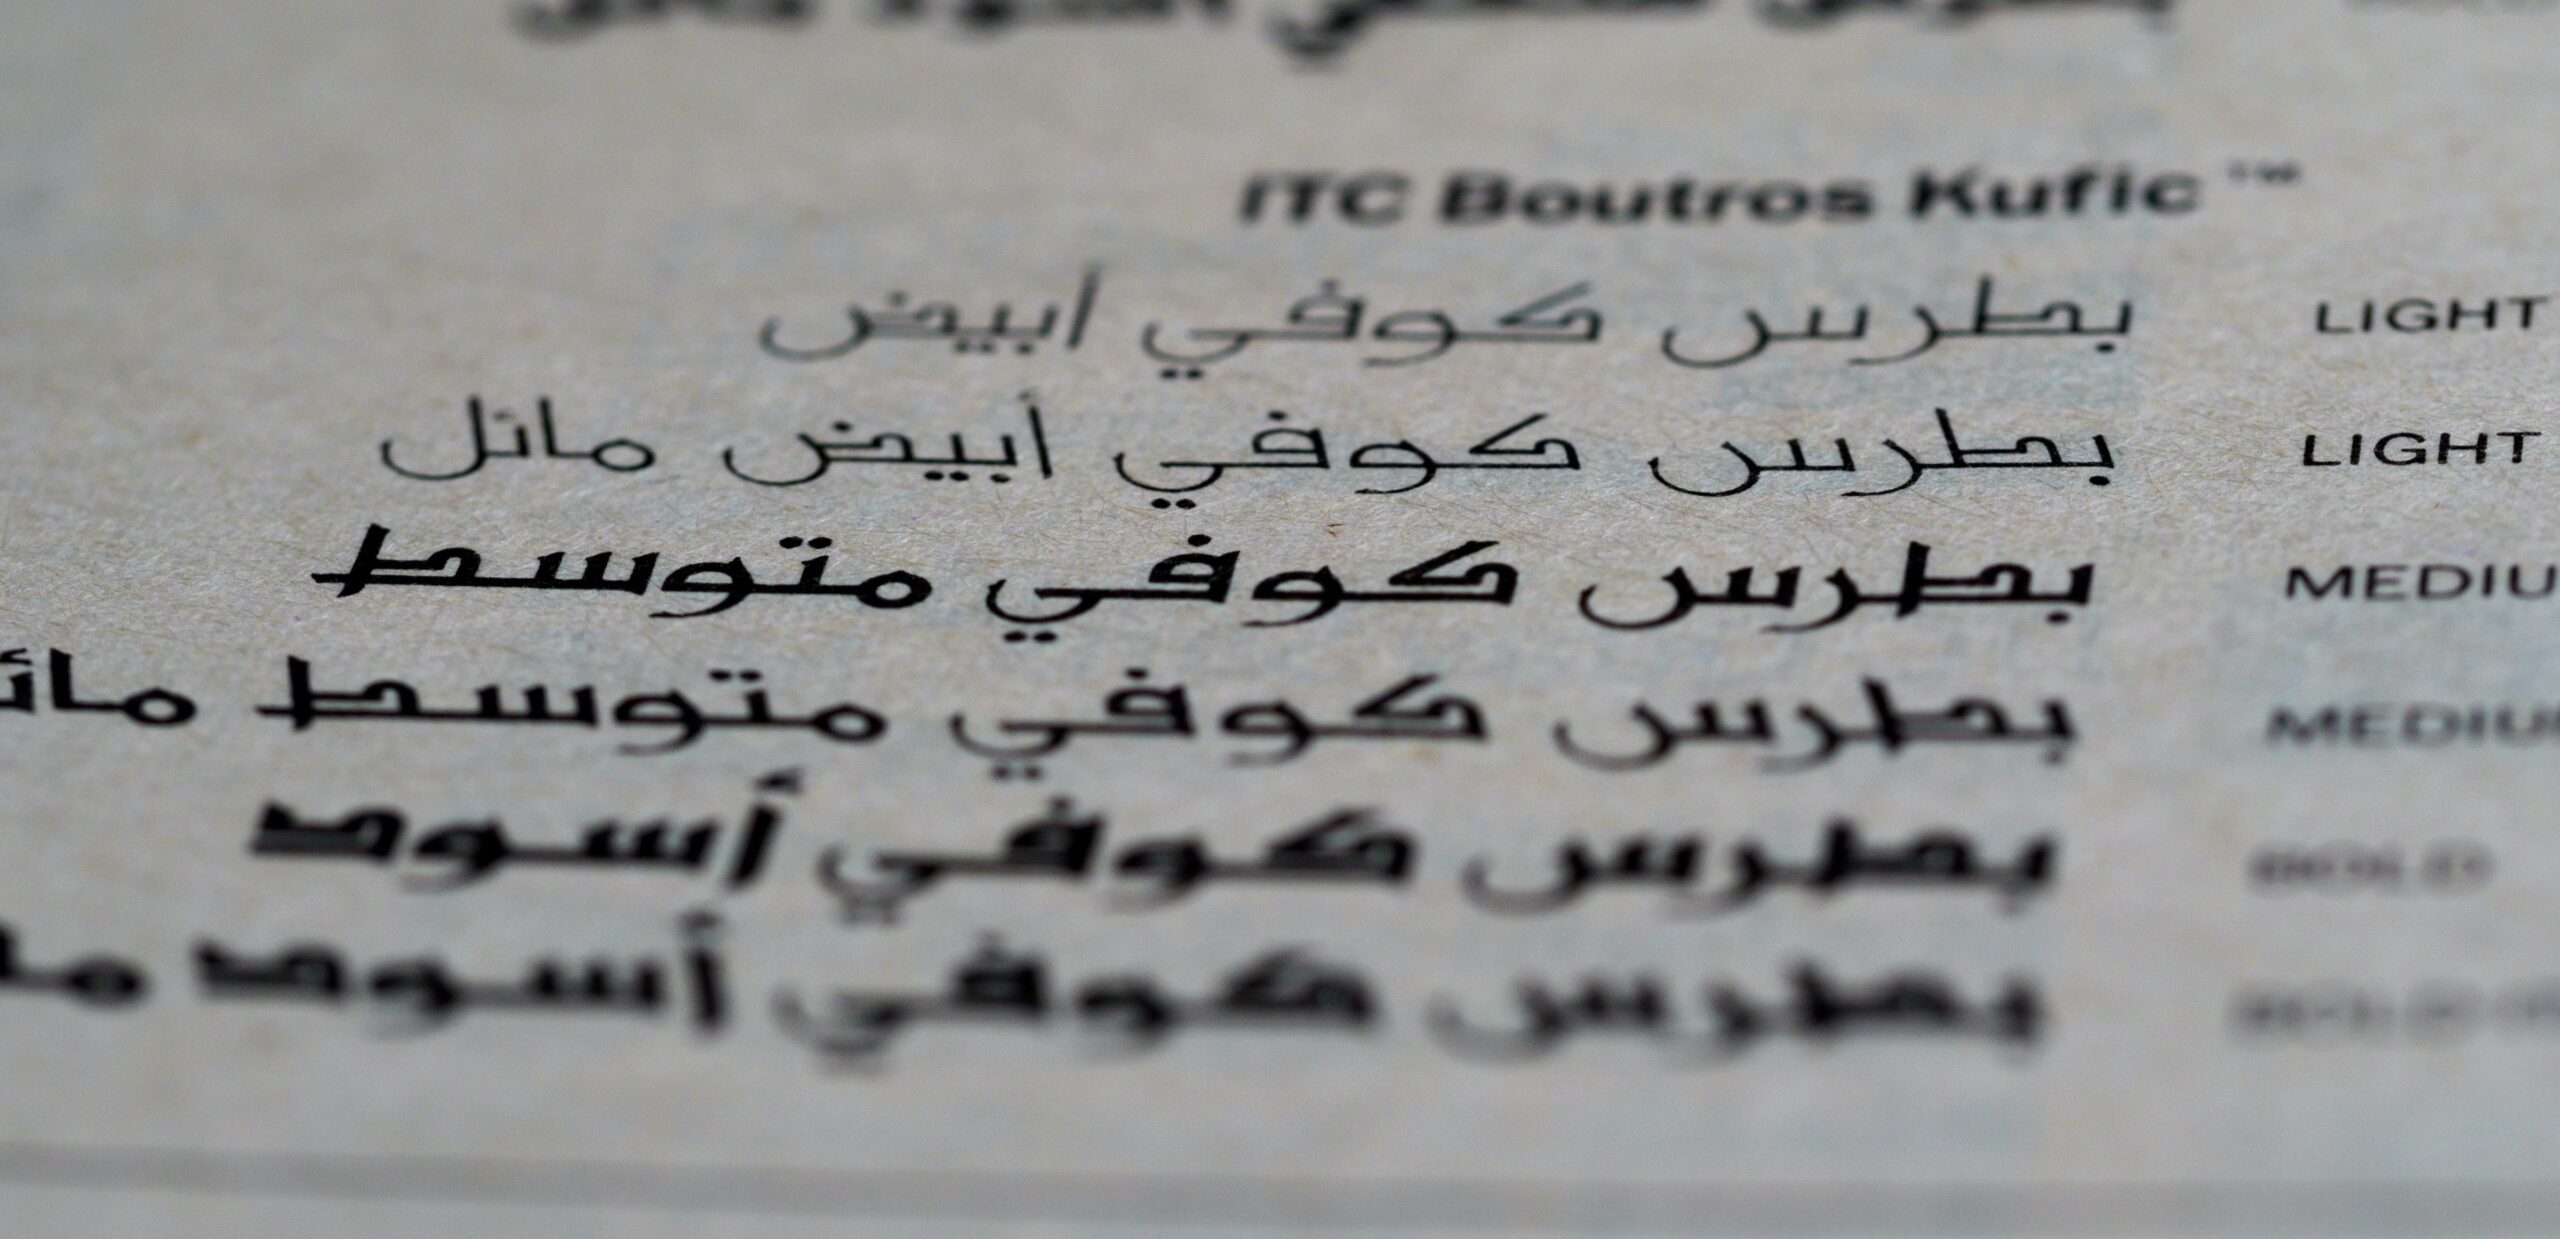 ITC Boutros Kufic™
بطرس كوفي أبيض LIGHT
بطرس كوفي أبيض مائل LIGHT
بطرس كوفي متوسط MEDIU
بطرس كوفي متوسط مائ MEDIU
بطرس كوفي أسود BOLD
بطرس كوفي أسود ما